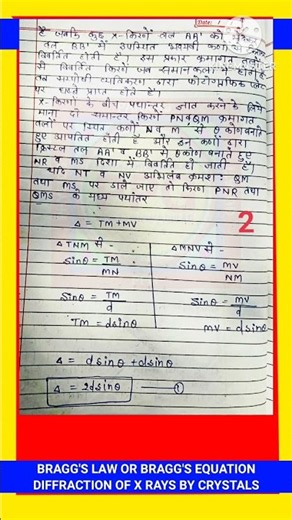 Date:
है जबकि कुछ x-किरणें तल AA' को
तल BB' में उपस्थित अवयवी कण से
विवर्तित होती हैं। इस प्रकार क्रमागत तलों
से विवर्तित किरणें जब समान कला में होती हैं
तब संपोषी व्यतिकरण द्वारा फोटोग्राफिक प्लेट
पर चमकते प्राप्त होते हैं।
x-किरणों के बीच पथान्तर ज्ञात करने के लिये
माना दो समान्तर किरणें PN व QM क्रमागत
तलों पर स्थित कणों N व M से θ कोण बनाते
हुए आपतित होती हैं और इन कणों द्वारा
क्रिस्टल तल AA' व BB' से θ कोण बनाते हुए
NR व MS दिशा में विवर्तित हो जाती हैं।
यदि NT व NV अभिलंब क्रमशः QM
तथा MS पर डाले जाए तो किरण PNR तथा
QMS के मध्य पथांतर
2
Δ = TM + MV
ΔTNM से - ΔMNV से -
sinθ = TM/MN sinθ = MV/NM
sinθ = TM/d sinθ = MV/d
TM = dsinθ MV = dsinθ
Δ = dsinθ + dsinθ
Δ = 2dsinθ — ①
BRAGG'S LAW OR BRAGG'S EQUATION
DIFFRACTION OF X RAYS BY CRYSTALS